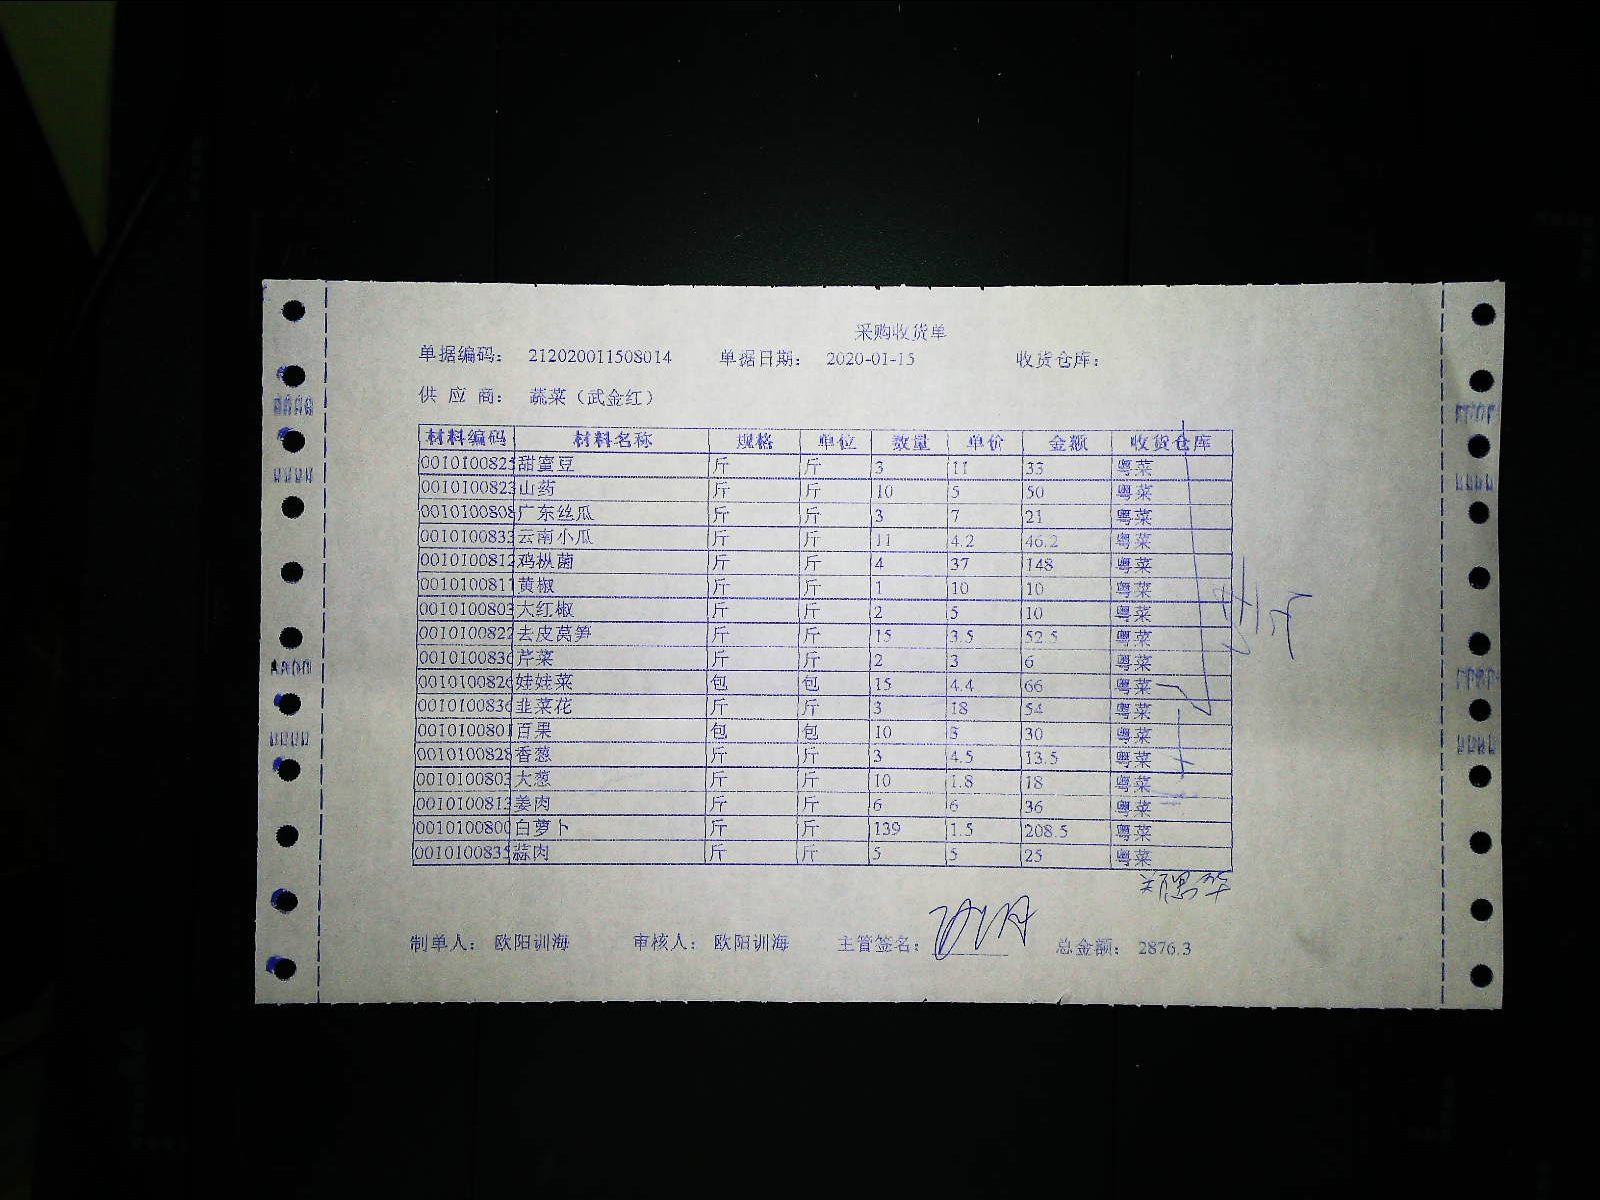 采购收货单
单据编码： 212020011508014 单据日期： 2020-01-15 收货仓库：
供 应 商： 蔬菜（武金红）
材料编码 材料名称 规格 单位 数量 单价 金额 收货仓库
0010100825 甜蜜豆 斤 斤 3 11 33 粤菜
0010100823 山药 斤 斤 10 5 50 粤菜
0010100808 广东丝瓜 斤 斤 3 7 21 粤菜
0010100833 云南小瓜 斤 斤 11 4.2 46.2 粤菜
0010100812 鸡枞菌 斤 斤 4 37 148 粤菜
0010100811 黄椒 斤 斤 1 10 10 粤菜
0010100803 大红椒 斤 斤 2 5 10 粤菜
0010100822 去皮莴笋 斤 斤 15 3.5 52.5 粤菜
0010100836 芹菜 斤 斤 2 3 6 粤菜
0010100826 娃娃菜 包 包 15 4.4 66 粤菜
0010100836 韭菜花 斤 斤 3 18 54 粤菜
0010100801 百果 包 包 10 3 30 粤菜
0010100828 香葱 斤 斤 3 4.5 13.5 粤菜
0010100803 大葱 斤 斤 10 1.8 18 粤菜
0010100813 姜肉 斤 斤 6 6 36 粤菜
0010100800 白萝卜 斤 斤 139 1.5 208.5 粤菜
0010100835 蒜肉 斤 斤 5 5 25 粤菜
制单人： 欧阳训海 审核人： 欧阳训海 主管签名： 总金额： 2876.3